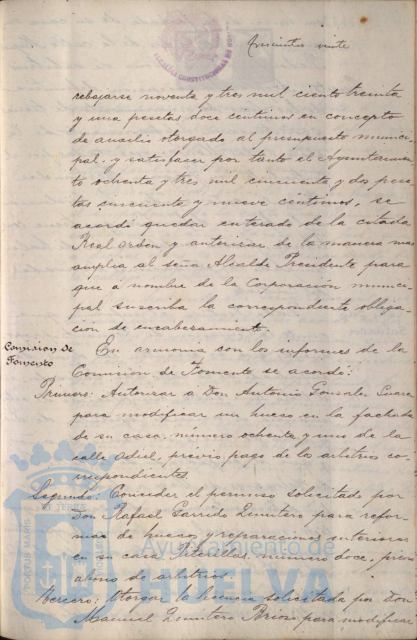 Trescientos veinte
rebajarse noventa y tres mil ciento treinta
y una pesetas doce céntimos en concepto
de auxilio otorgado al presupuesto munici-
pal y satisfacer por tanto el Ayuntamien-
to ochenta y tres mil cincuenta y dos pese-
tas cincuenta y nueve céntimos, se
acordó quedar enterado de la citada
Real orden y autorizar de la manera mas
amplia al señor Alcalde Presidente para
que á nombre de la Corporación munici-
pal suscriba la correspondiente obliga-
cion de encabezamiento.
Comision de
Fomento
En armonia con los informes de la
Comision de Fomento se acordó:
Primero: Autorizar a Don Antonio Gonzalez
para modificar un hueco en la fachada
de su casa, número ochenta y uno de la
calle Odiel, previo pago de los arbitrios co-
rrespondientes.
Segundo: Conceder el permiso solicitado por
Don Rafael Garrido Quintero para refor-
mas de huecos y reparaciones interiores
en su casa número doce, previo
abono de arbitrios.
Tercero: Otorgar la licencia solicitada por Don
Manuel Quintero para modificar
Ayuntamiento de
HUELVA
PORTUS MARIS